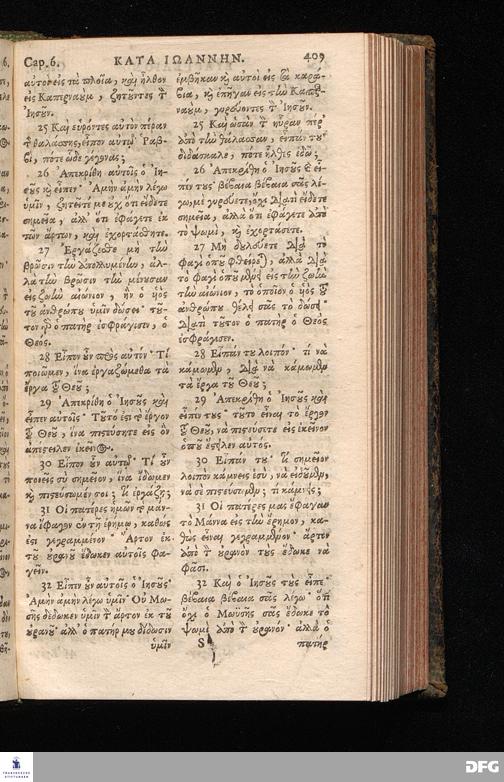 Cap. 6. ΚΑΤΑ ΙΩΑΝΝΗΝ. 409
αὐτοὶ εἰς τὰ πλοῖα, καὶ ἦλθον
εἰς Καπερναοὺμ, ζητοῦντες τὸν
Ἰησοῦν.
25 Καὶ εὑρόντες αὐτὸν πέραν
τῆς θαλάσσης, εἶπον αὐτῷ· Ῥαβ-
βὶ, πότε ὧδε γέγονας;
26 Ἀπεκρίθη αὐτοῖς ὁ Ἰη-
σοῦς καὶ εἶπεν· Ἀμὴν ἀμὴν λέγω
ὑμῖν, ζητεῖτέ με οὐχ ὅτι εἴδετε
σημεῖα, ἀλλ' ὅτι ἐφάγετε ἐκ
τῶν ἄρτων, καὶ ἐχορτάσθητε.
27 Ἐργάζεσθε μὴ τὴν
βρῶσιν τὴν ἀπολλυμένην, ἀλ-
λὰ τὴν βρῶσιν τὴν μένουσαν
εἰς ζωὴν αἰώνιον, ἣν ὁ υἱὸς
τοῦ ἀνθρώπου ὑμῖν δώσει· τοῦ-
τον γὰρ ὁ πατὴρ ἐσφράγισεν, ὁ
Θεός.
28 Εἶπον οὖν πρὸς αὐτόν· Τί
ποιῶμεν, ἵνα ἐργαζώμεθα τὰ
ἔργα τοῦ Θεοῦ;
29 Ἀπεκρίθη ὁ Ἰησοῦς καὶ
εἶπεν αὐτοῖς· Τοῦτό ἐστι τὸ ἔργον
τοῦ Θεοῦ, ἵνα πιστεύσητε εἰς ὃν
ἀπέστειλεν ἐκεῖνος.
30 Εἶπον οὖν αὐτῷ· Τί οὖν
ποιεῖς σὺ σημεῖον, ἵνα ἴδωμεν
καὶ πιστεύσωμέν σοι; τί ἐργάζῃ;
31 Οἱ πατέρες ἡμῶν τὸ μάν-
να ἔφαγον ἐν τῇ ἐρήμῳ, καθώς
ἐστι γεγραμμένον· Ἄρτον ἐκ
τοῦ οὐρανοῦ ἔδωκεν αὐτοῖς φα-
γεῖν.
32 Εἶπεν οὖν αὐτοῖς ὁ Ἰησοῦς·
Ἀμὴν ἀμὴν λέγω ὑμῖν· Οὐ Μω-
σῆς δέδωκεν ὑμῖν τὸν ἄρτον ἐκ τοῦ
οὐρανοῦ· ἀλλ' ὁ πατήρ μου δίδωσιν
ὑμῖν
ἐμβῆκαν καὶ αὐτοὶ εἰς τὰ καρά-
βια, καὶ ἐπῆγαν εἰς τὴν Καπερ-
ναοὺμ, γυρεύοντες τὸν Ἰησοῦν.
25 Καὶ ὡσὰν τὸν ηὗραν πέρα
ἀπὸ τὴν θάλασσαν, εἶπάν του·
διδάσκαλε, πότε ἦλθες ἐδῶ;
26 Ἀπεκρίθη ὁ Ἰησοῦς καὶ εἶ-
πέν τους· βέβαια βέβαια σᾶς λέ-
γω, μὲ γυρεύετε, ὄχι διατὶ εἴδετε
σημεῖα, ἀλλὰ ὅτι ἐφάγετε ἀπὸ
τὸ ψωμὶ, καὶ ἐχορτάσετε.
27 Μὴ δουλεύετε διὰ τὸ
φαγὶ ὁποῦ φθείρεται, ἀλλὰ διὰ
τὸ φαγὶ ὁποῦ μένει εἰς τὴν ζωὴν
τὴν αἰώνιον, τὸ ὁποῖον ὁ υἱὸς τοῦ
ἀνθρώπου θέλει σᾶς τὸ δώσει·
διατὶ τοῦτον ὁ πατὴρ ὁ Θεὸς
ἐσφράγισεν.
28 Εἶπάν του λοιπόν· τί νὰ
κάμωμεν, διὰ νὰ κάμωμεν
τὰ ἔργα τοῦ Θεοῦ;
29 Ἀπεκρίθη ὁ Ἰησοῦς καὶ
εἶπέν τους· τοῦτο εἶναι τὸ ἔργον
τοῦ Θεοῦ, νὰ πιστεύσετε εἰς ἐκεῖνον
ὁποῦ ἔστειλεν αὐτός.
30 Εἶπάν του· τί σημεῖον
λοιπὸν κάμνεις ἐσὺ, νὰ εἰδοῦμεν,
νὰ σὲ πιστεύσωμεν; τί κάμνεις;
31 Οἱ πατέρες μας ἔφαγαν
τὸ Μάννα εἰς τὴν ἔρημον, κα-
θὼς εἶναι γεγραμμένον· ἄρτον
ἀπὸ τὸν οὐρανόν τους ἔδωκε νὰ
φᾶσι.
32 Καὶ ὁ Ἰησοῦς τοὺς εἶπε·
βέβαια βέβαια σᾶς λέγω· ὅτι
ὄχι ὁ Μωϋσῆς σᾶς ἔδωκε τὸ
ψωμὶ ἀπὸ τὸν οὐρανόν· ἀλλὰ ὁ
S πατήρ
FRANCKESCHE
STIFTUNGEN
DFG